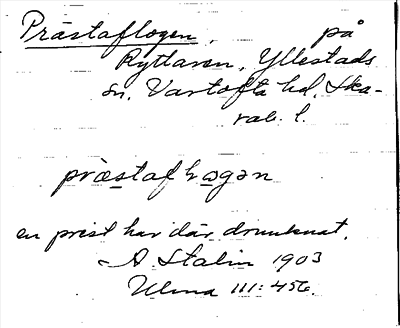 Prästaflogen, på
Ryttaren, Yllestads
sn. Vartofta hd. Ska-
rab. l.
præstaflogən
en prest har där drunknat.
A. Stalin 1903
Ulma 111: 456.